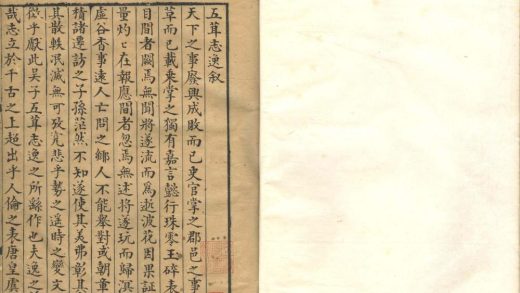 五茸志逸叙
天下之事廢興成敗而已吏官掌之郡邑之事
草而已載乘掌之獨有嘉言懿行珠零玉碎表
目間者闕焉無聞將遂流而為逝波花因果証
量灼〻在報應間者忽焉無述將遂玩而歸溟
虛谷香事遠人亡問之鄉人不能舉對或朝章
稽諸遷訪之子孫茫然不知遂使其美弗彰其
其散軼泯滅無可攷究悲乎勢之遥時之變文
微乎厭此吳子五茸志逸之所繇作也夫逸之
哉志立於千古之上超出乎人倫之表唐皇虞